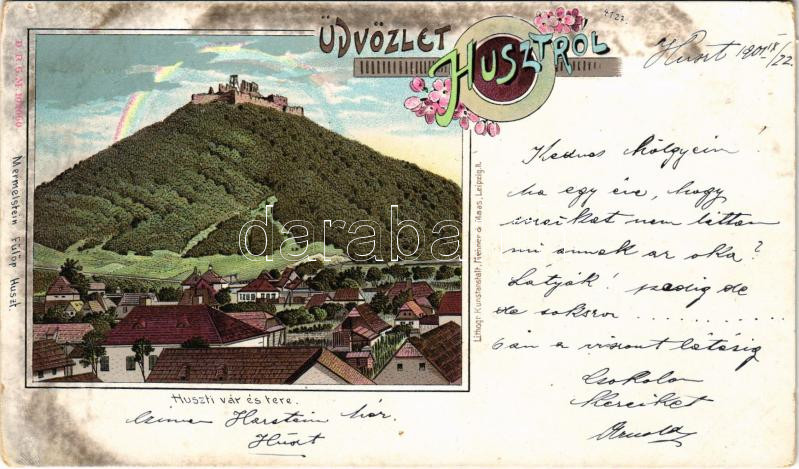 ÜDVÖZLET
HUSZTRÓL
Huszt 1901 IX/22.
D.R.G.M.
Mermelstein Fülöp Huszt
Lithogr. Kunstanstalt, Renner & Maas, Leipzig-R.
darabanth
Kedves hölgyeim
ma egy éve, hogy
viszont nem láttam
mi annak az oka?
Látják! pedig de
de sokszor ..........
6án a viszont látásig
Csókolom
Kezeiket
Arnold
Huszti vár és tere.
Címem Harstein ház.
Huszt